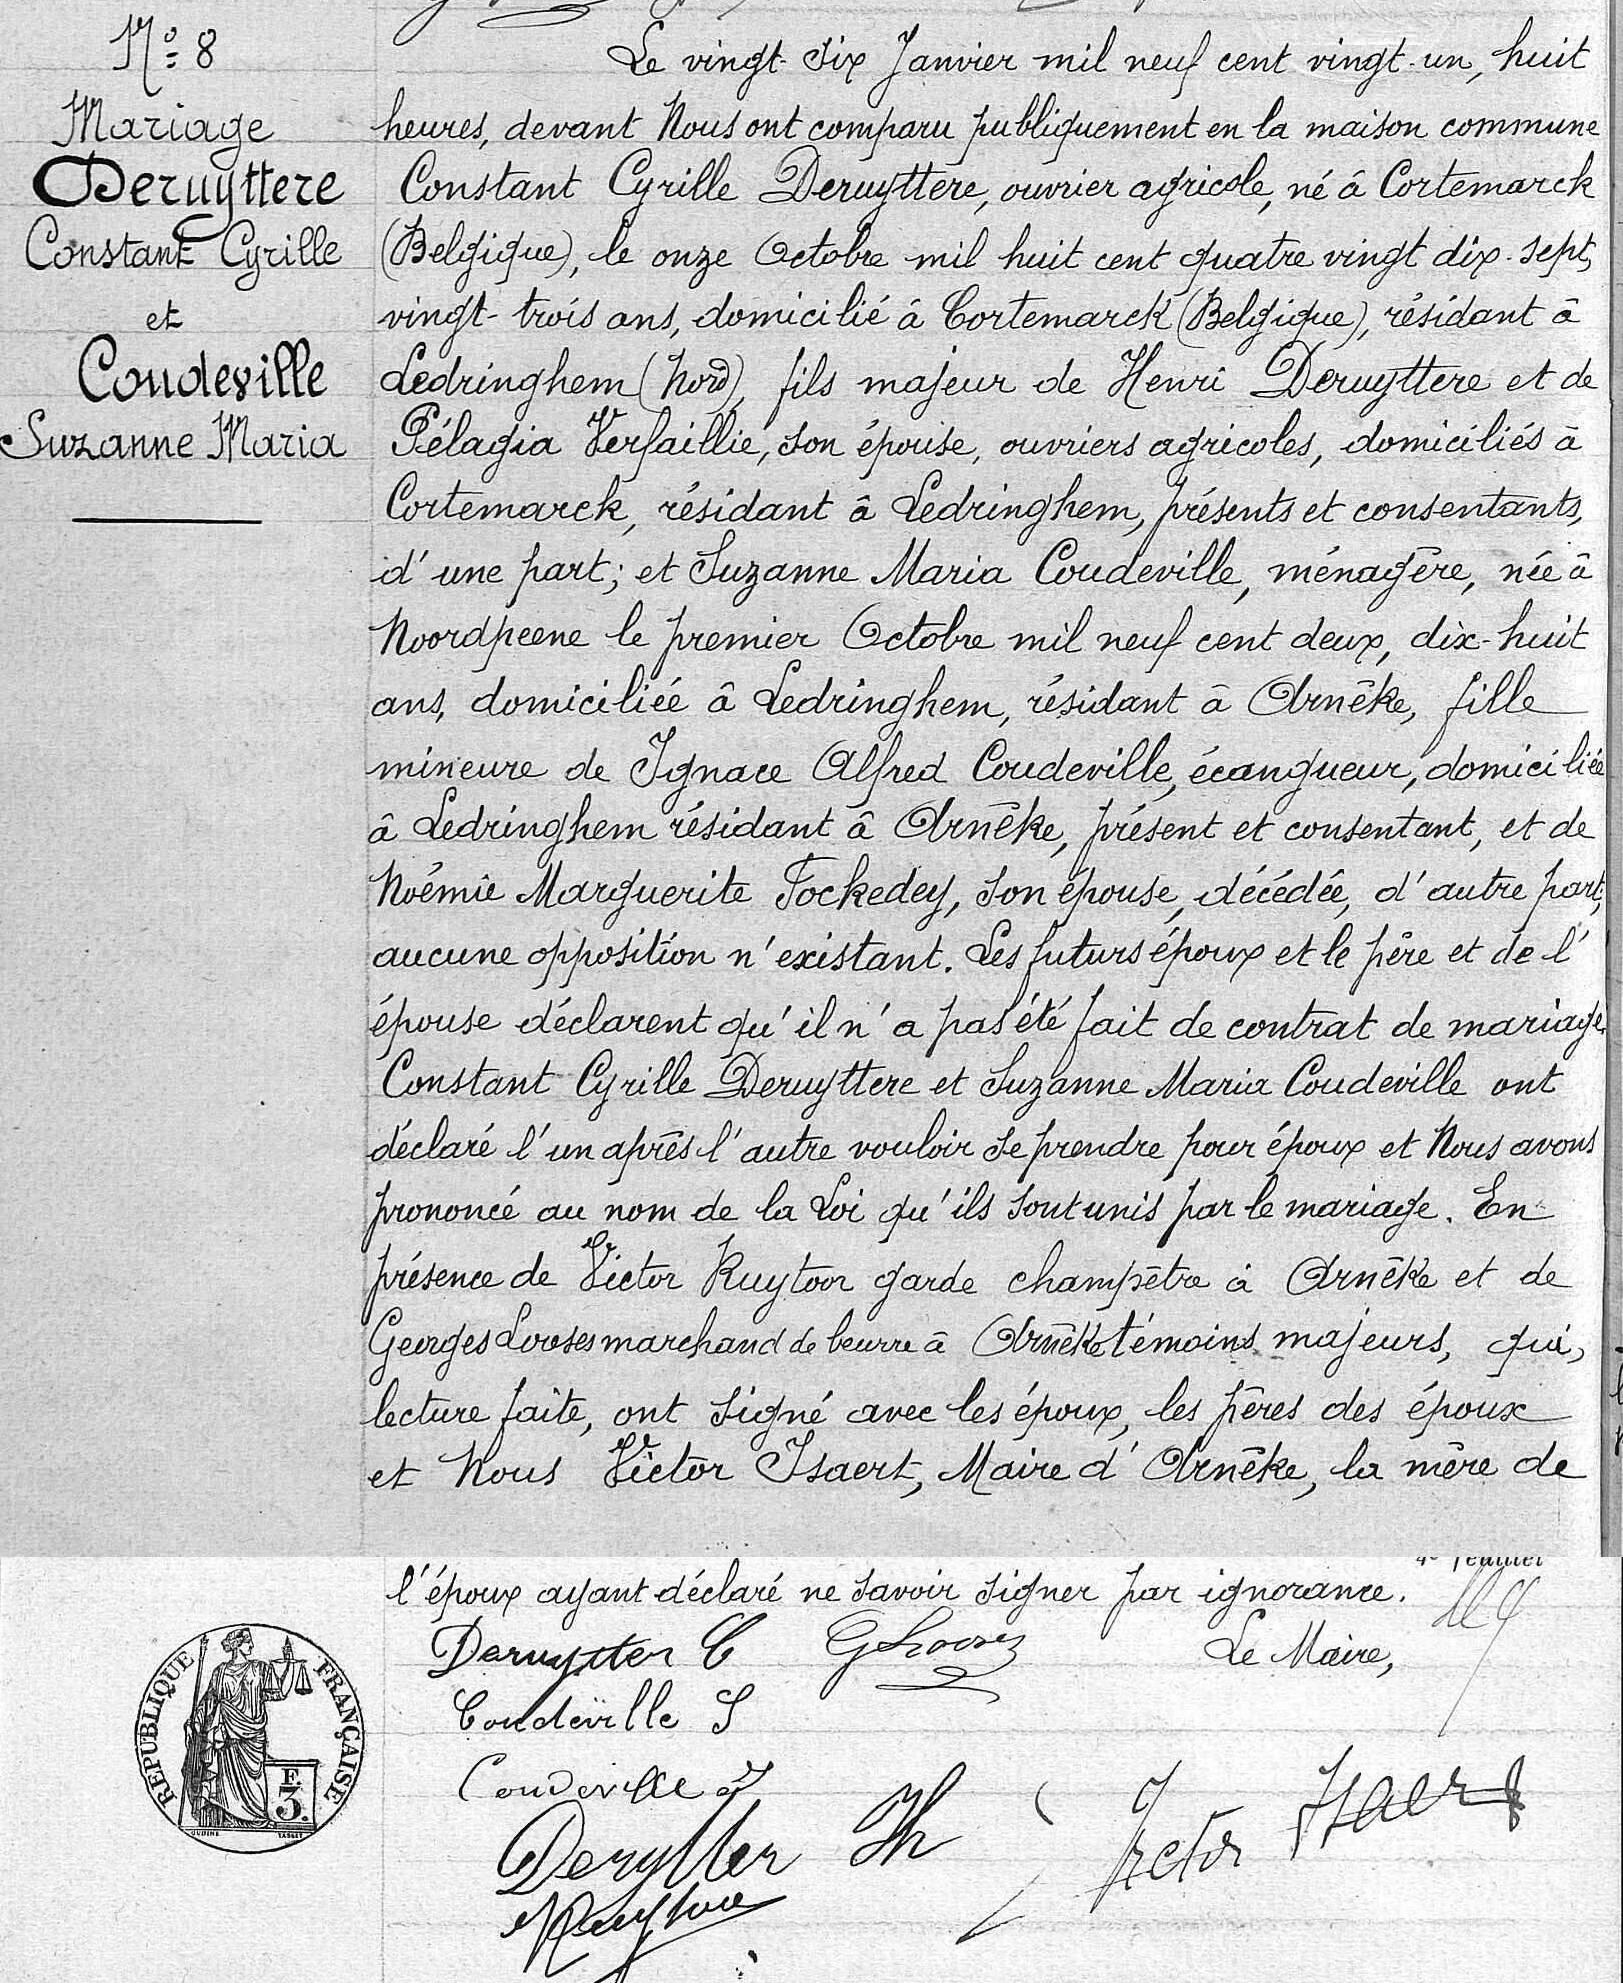 N° 8
Mariage
Deruyttere
Constant Cyrille
et
Coudeville
Suzanne Maria
Le vingt-six Janvier mil neuf cent vingt-un, huit
heures, devant Nous ont comparu publiquement en la maison commune
Constant Cyrille Deruyttere, ouvrier agricole, né à Cortemarck
(Belgique), le onze Octobre mil huit cent quatre vingt dix-sept,
vingt-trois ans, domicilié à Cortemarck (Belgique), résidant à
Ledringhem (Nord), fils majeur de Henri Deruyttere et de
Pélagia Verfaillie, son épouse, ouvriers agricoles, domiciliés à
Cortemarck, résidant à Ledringhem, présents et consentants,
d'une part; et Suzanne Maria Coudeville, ménagère, née à
Noordpeene le premier Octobre mil neuf cent deux, dix-huit
ans, domiciliée à Ledringhem, résidant à Arnêke, fille
mineure de Ignace Alfred Coudeville, écangueur, domiciliée
à Ledringhem résidant à Arnêke, présent et consentant, et de
Noémie Marguerite Fockedey, son épouse, décédée, d'autre part,
aucune opposition n'existant. Les futurs époux et le père et de l'
épouse déclarent qu'il n'a pas été fait de contrat de mariage.
Constant Cyrille Deruyttere et Suzanne Maria Coudeville ont
déclaré l'un après l'autre vouloir se prendre pour époux et Nous avons
prononcé au nom de la Loi qu'ils sont unis par le mariage. En
présence de Victor Ruytoor garde champêtre à Arnêke et de
Georges Looses marchand de beurre à Arnêke témoins majeurs, qui,
lecture faite, ont signé avec les époux, les pères des époux
et Nous Victor Isaert, Maire d'Arnêke, la mère de
4e feuillet
l'époux ayant déclaré ne savoir signer par ignorance.
Deruytter C GLooses Le Maire,
Coudeville S
Coudeville I
Derytter H Victor Isaert
Ruytoor
RÉPUBLIQUE FRANÇAISE
F.
3.
OUDINÉ TASSET